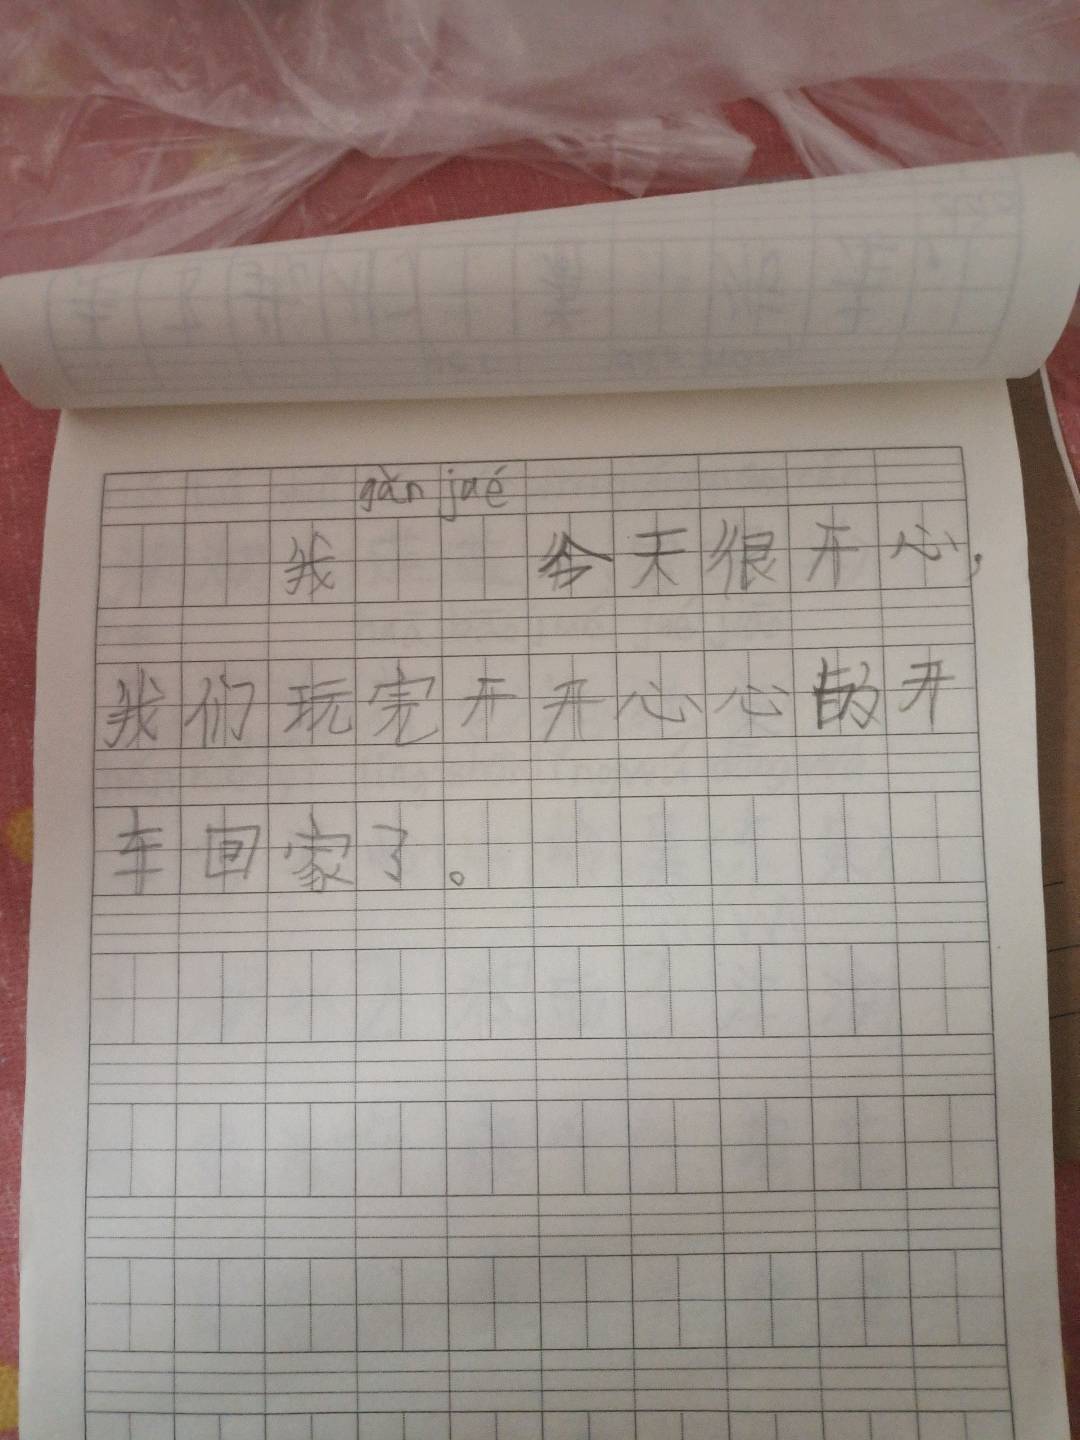 gǎn jué
我 今天很开心，
我们玩完开开心心的开
车回家了。